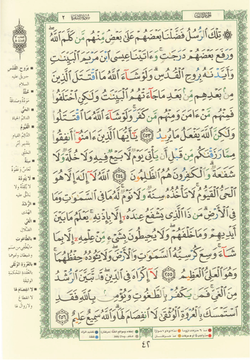 تِلْكَ الرُّسُلُ فَضَّلْنَا بَعْضَهُمْ عَلَىٰ بَعْضٍ مِّنْهُم مَّن كَلَّمَ اللَّهُ
وَرَفَعَ بَعْضَهُمْ دَرَجَاتٍ وَءَاتَيْنَا عِيسَى ابْنَ مَرْيَمَ الْبَيِّنَاتِ
وَأَيَّدْنَاهُ بِرُوحِ الْقُدُسِ وَلَوْ شَاءَ اللَّهُ مَا اقْتَتَلَ الَّذِينَ
مِنْ بَعْدِهِم مِّنْ بَعْدِ مَا جَاءَتْهُمُ الْبَيِّنَاتُ وَلَٰكِنِ اخْتَلَفُوا
فَمِنْهُم مَّنْ ءَامَنَ وَمِنْهُم مَّن كَفَرَ وَلَوْ شَاءَ اللَّهُ مَا اقْتَتَلُوا
وَلَٰكِنَّ اللَّهَ يَفْعَلُ مَا يُرِيدُ ﴿٢٥٣﴾ يَا أَيُّهَا الَّذِينَ ءَامَنُوا أَنفِقُوا
مِمَّا رَزَقْنَاكُم مِّن قَبْلِ أَن يَأْتِيَ يَوْمٌ لَّا بَيْعٌ فِيهِ وَلَا خُلَّةٌ وَلَا
شَفَاعَةٌ وَالْكَافِرُونَ هُمُ الظَّالِمُونَ ﴿٢٥٤﴾ اللَّهُ لَا إِلَٰهَ إِلَّا هُوَ
الْحَيُّ الْقَيُّومُ لَا تَأْخُذُهُ سِنَةٌ وَلَا نَوْمٌ لَّهُ مَا فِي السَّمَاوَاتِ وَمَا
فِي الْأَرْضِ مَن ذَا الَّذِي يَشْفَعُ عِندَهُ إِلَّا بِإِذْنِهِ يَعْلَمُ مَا بَيْنَ
أَيْدِيهِمْ وَمَا خَلْفَهُمْ وَلَا يُحِيطُونَ بِشَيْءٍ مِّنْ عِلْمِهِ إِلَّا بِمَا
شَاءَ وَسِعَ كُرْسِيُّهُ السَّمَاوَاتِ وَالْأَرْضَ وَلَا يَئُودُهُ حِفْظُهُمَا
وَهُوَ الْعَلِيُّ الْعَظِيمُ ﴿٢٥٥﴾ لَا إِكْرَاهَ فِي الدِّينِ قَد تَّبَيَّنَ الرُّشْدُ
مِنَ الْغَيِّ فَمَن يَكْفُرْ بِالطَّاغُوتِ وَيُؤْمِنْ بِاللَّهِ فَقَدِ
اسْتَمْسَكَ بِالْعُرْوَةِ الْوُثْقَىٰ لَا انفِصَامَ لَهَا وَاللَّهُ سَمِيعٌ عَلِيمٌ ﴿٢٥٦﴾
٤٢